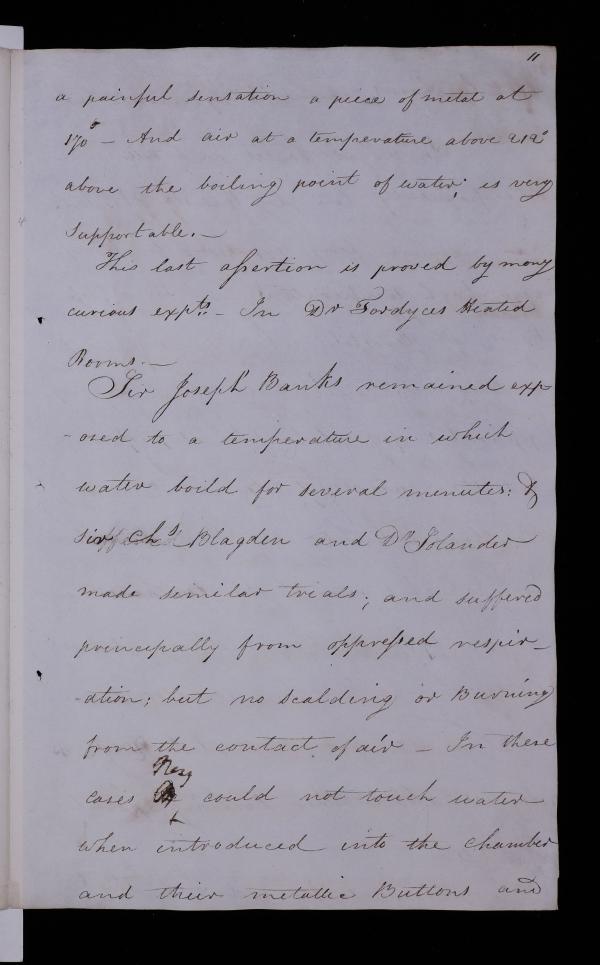 11
a painful sensation a piece of metal at
170° – And air at a temperature above 212°
above the boiling point of water; is very
supportable. –
This last assertion is proved by many
curious expts. – In Dr Fordyces Heated
Rooms. –
Sir Joseph Banks remained exp-
-osed to a temperature in which
water boild for several menutes: &
sir Chs. Blagden and Dr Solander
made similar trials; and suffered
principally from oppressed respir-
-ation; but no scalding or Burning
from the contact of air – In these
cases They could not touch water
when introduced into the chamber
and their metallic Buttons and